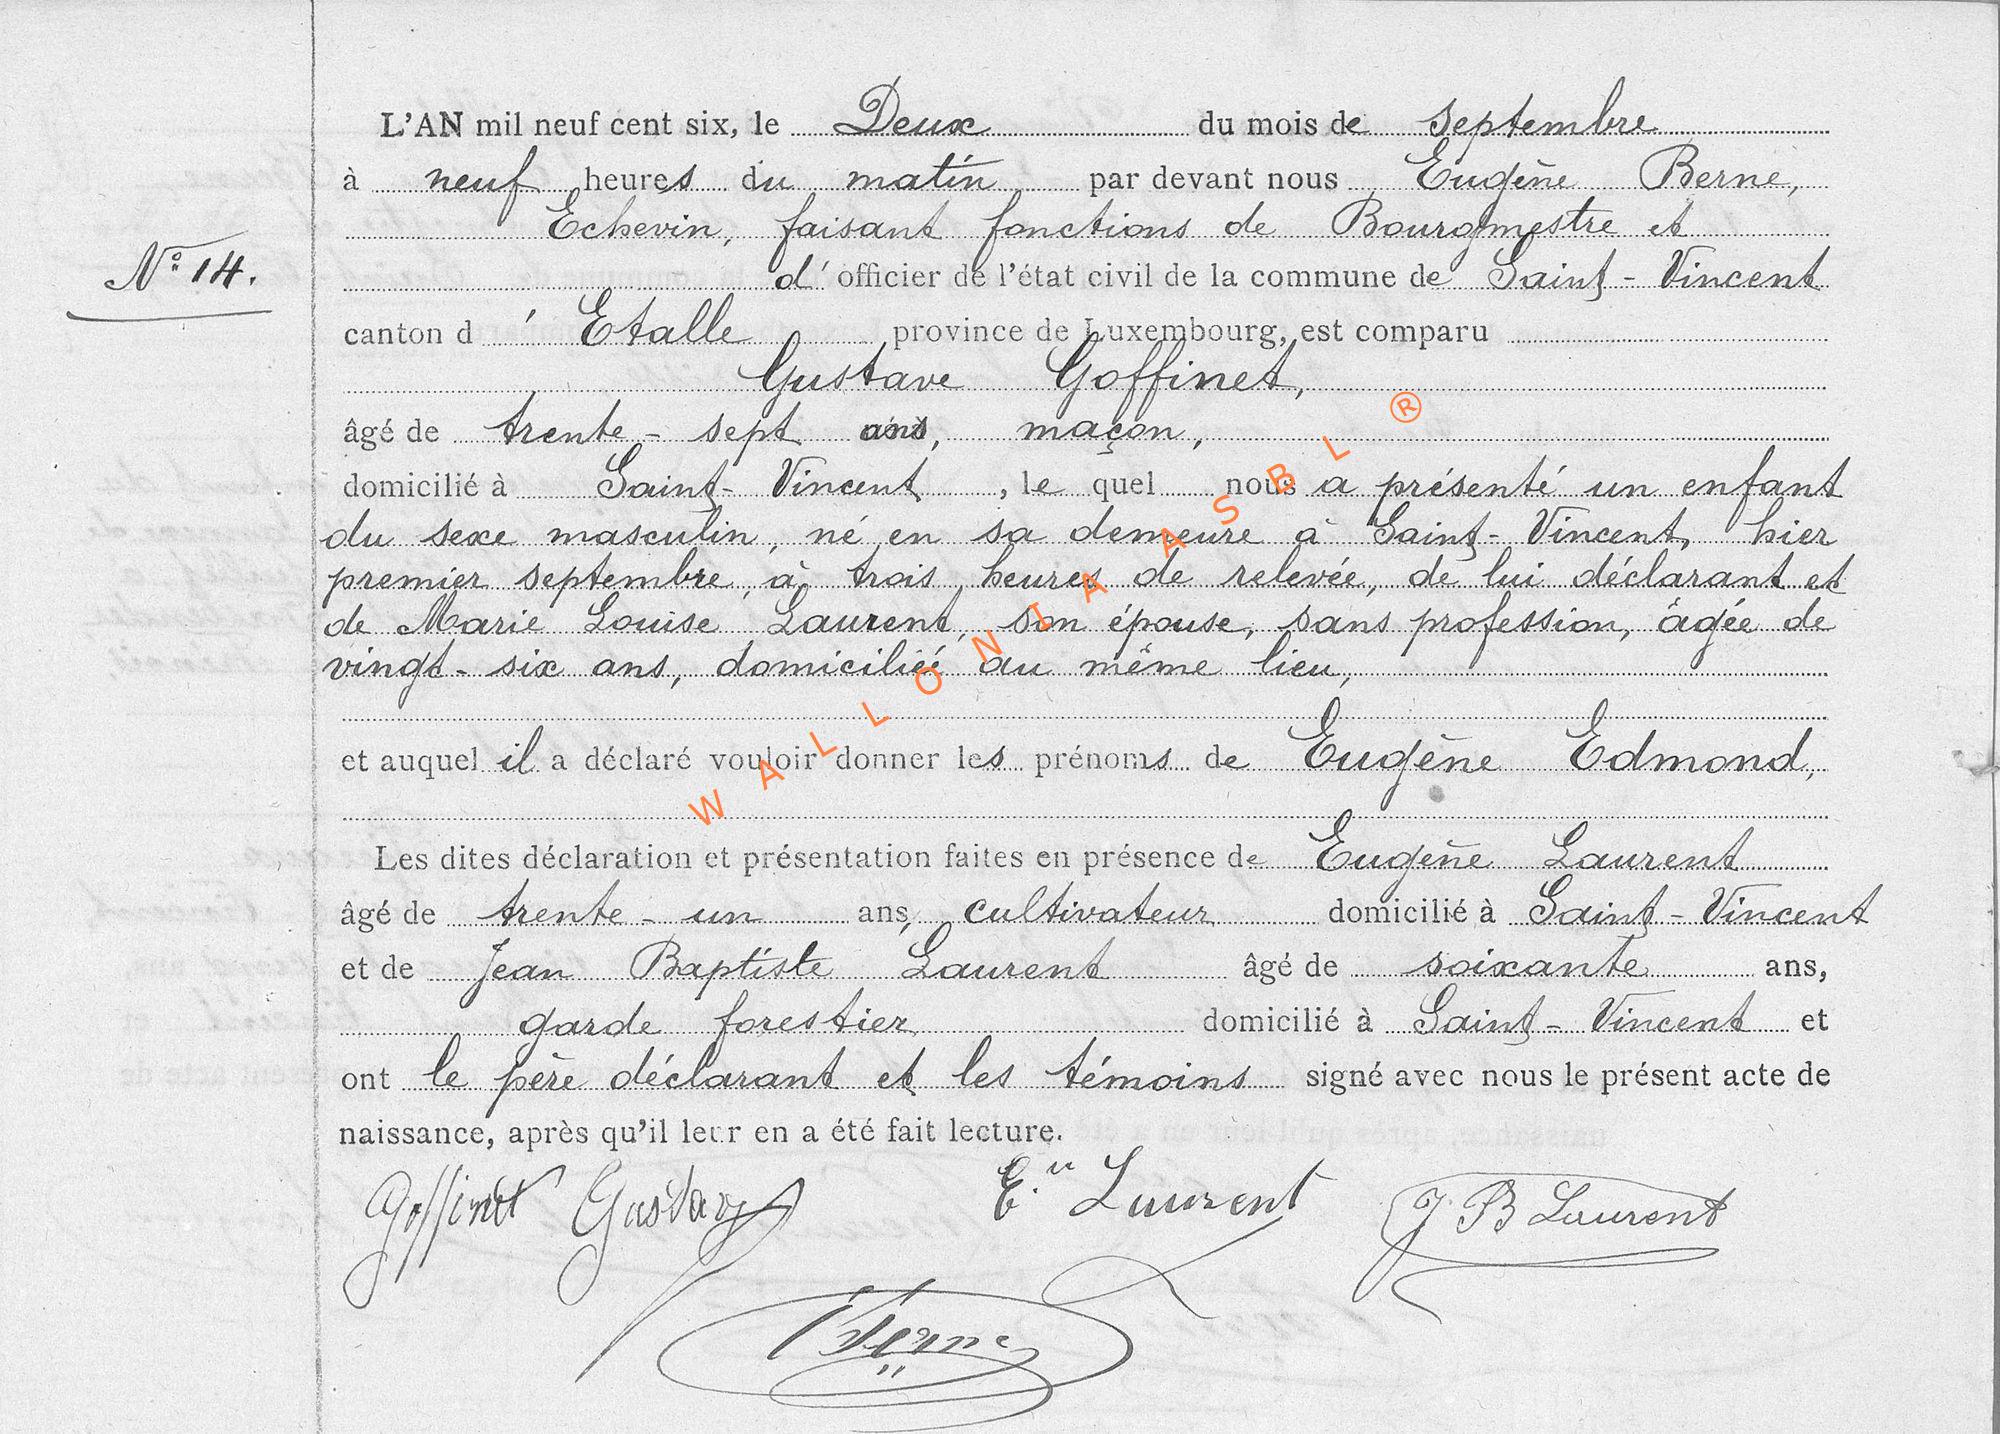 L'AN mil neuf cent six, le Deux du mois de septembre
à neuf heures du matin par devant nous Eugène Berne,
Echevin, faisant fonctions de Bourgmestre et
N° 14.
d' officier de l'état civil de la commune de Saint-Vincent
canton d' Etalle province de Luxembourg, est comparu
Gustave Goffinet,
âgé de trente-sept ans, maçon,
domicilié à Saint-Vincent, le quel nous a présenté un enfant
du sexe masculin, né en sa demeure à Saint-Vincent, hier
premier septembre, à trois heures de relevée, de lui déclarant et
de Marie Louise Laurent, son épouse, sans profession, âgée de
vingt-six ans, domiciliée au même lieu,
et auquel il a déclaré vouloir donner les prénoms de Eugène Edmond,
Les dites déclaration et présentation faites en présence de Eugène Laurent
âgé de trente-un ans, cultivateur domicilié à Saint-Vincent
et de Jean Baptiste Laurent âgé de soixante ans,
garde forestier domicilié à Saint-Vincent et
ont le père déclarant et les témoins signé avec nous le présent acte de
naissance, après qu'il leur en a été fait lecture.
Goffinet Gustave E.n Laurent J. B Laurent
Berne
WALLONIA ASBL ®